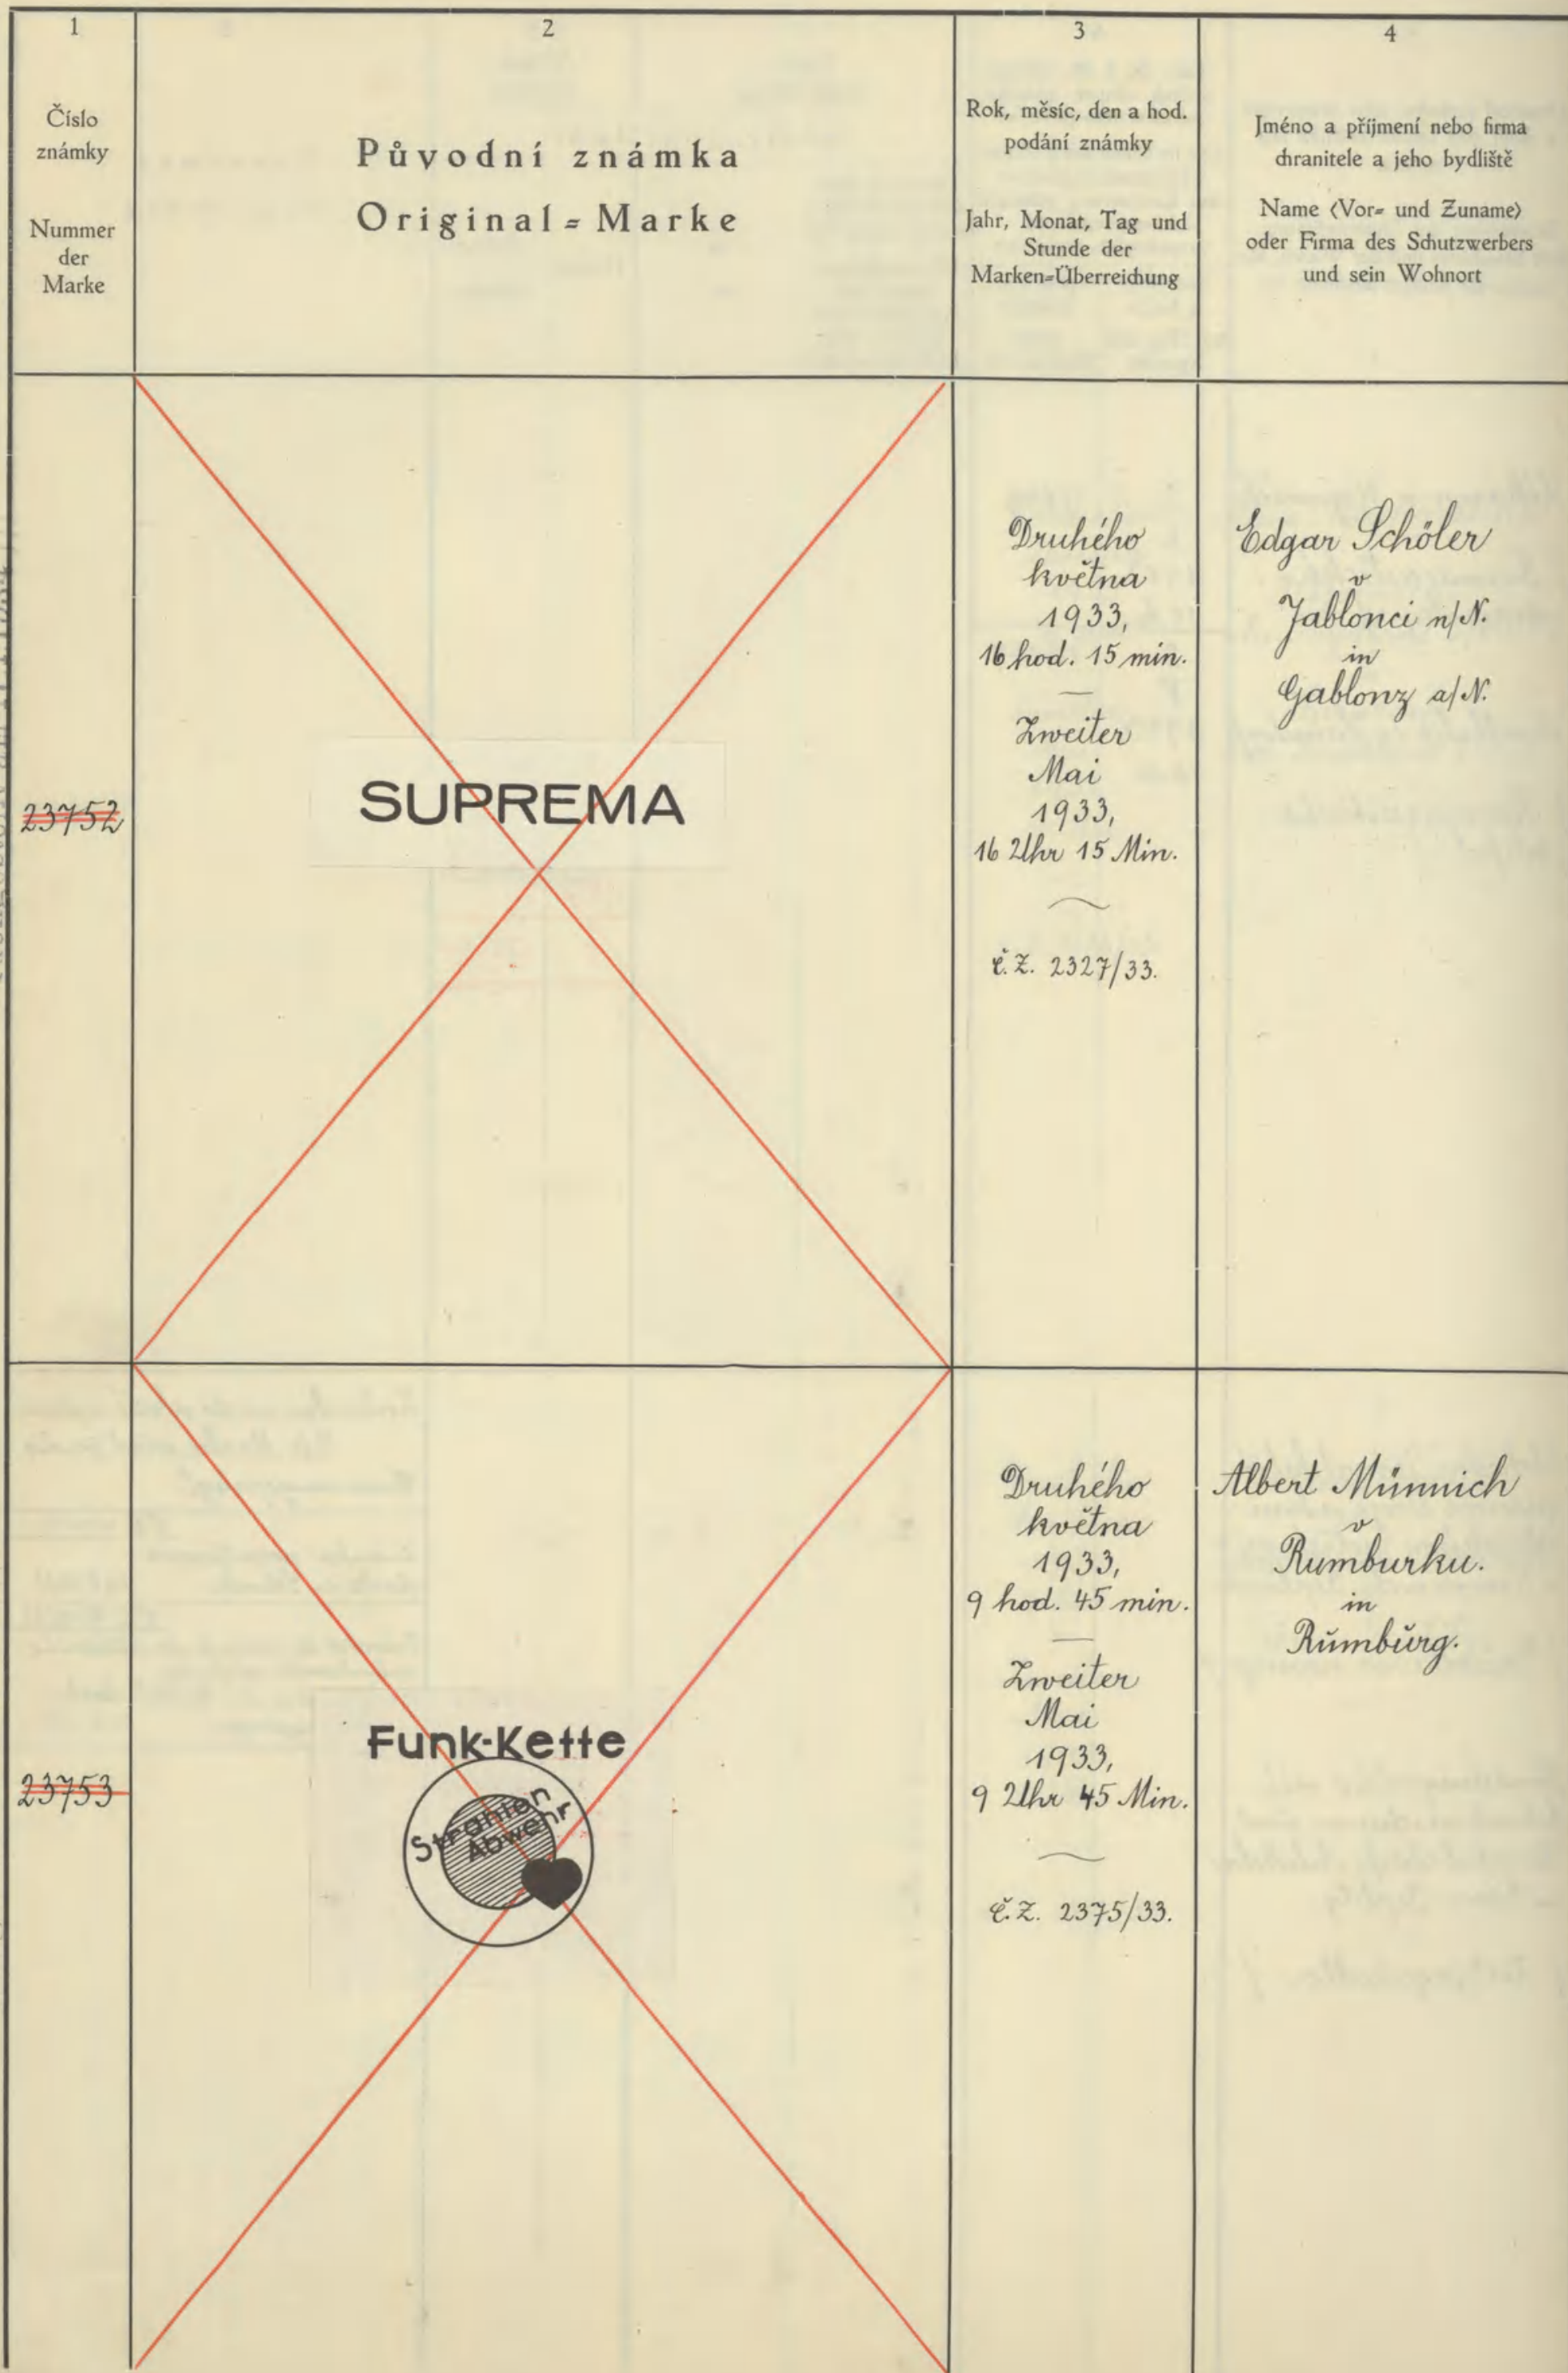 1
Číslo
známky
Nummer
der
Marke
2
Původní známka
Original=Marke
3
Rok, měsíc, den a hod.
podání známky
Jahr, Monat, Tag und
Stunde der
Marken=Überreichung
4
Jméno a příjmení nebo firma
chranitele a jeho bydliště
Name (Vor= und Zuname)
oder Firma des Schutzwerbers
und sein Wohnort
23752
SUPREMA
Druhého
května
1933,
16 hod. 15 min.
Zweiter
Mai
1933,
16 Uhr 15 Min.
č.Z. 2327/33.
Edgar Schöler
v
Jablonci n/N.
in
Gablonz a/N.
23753
Funk-Kette
Strahlen
Abwehr
Druhého
května
1933,
9 hod. 45 min.
Zweiter
Mai
1933,
9 Uhr 45 Min.
č.Z. 2375/33.
Albert Münnich
v
Rumburku.
in
Rumburg.